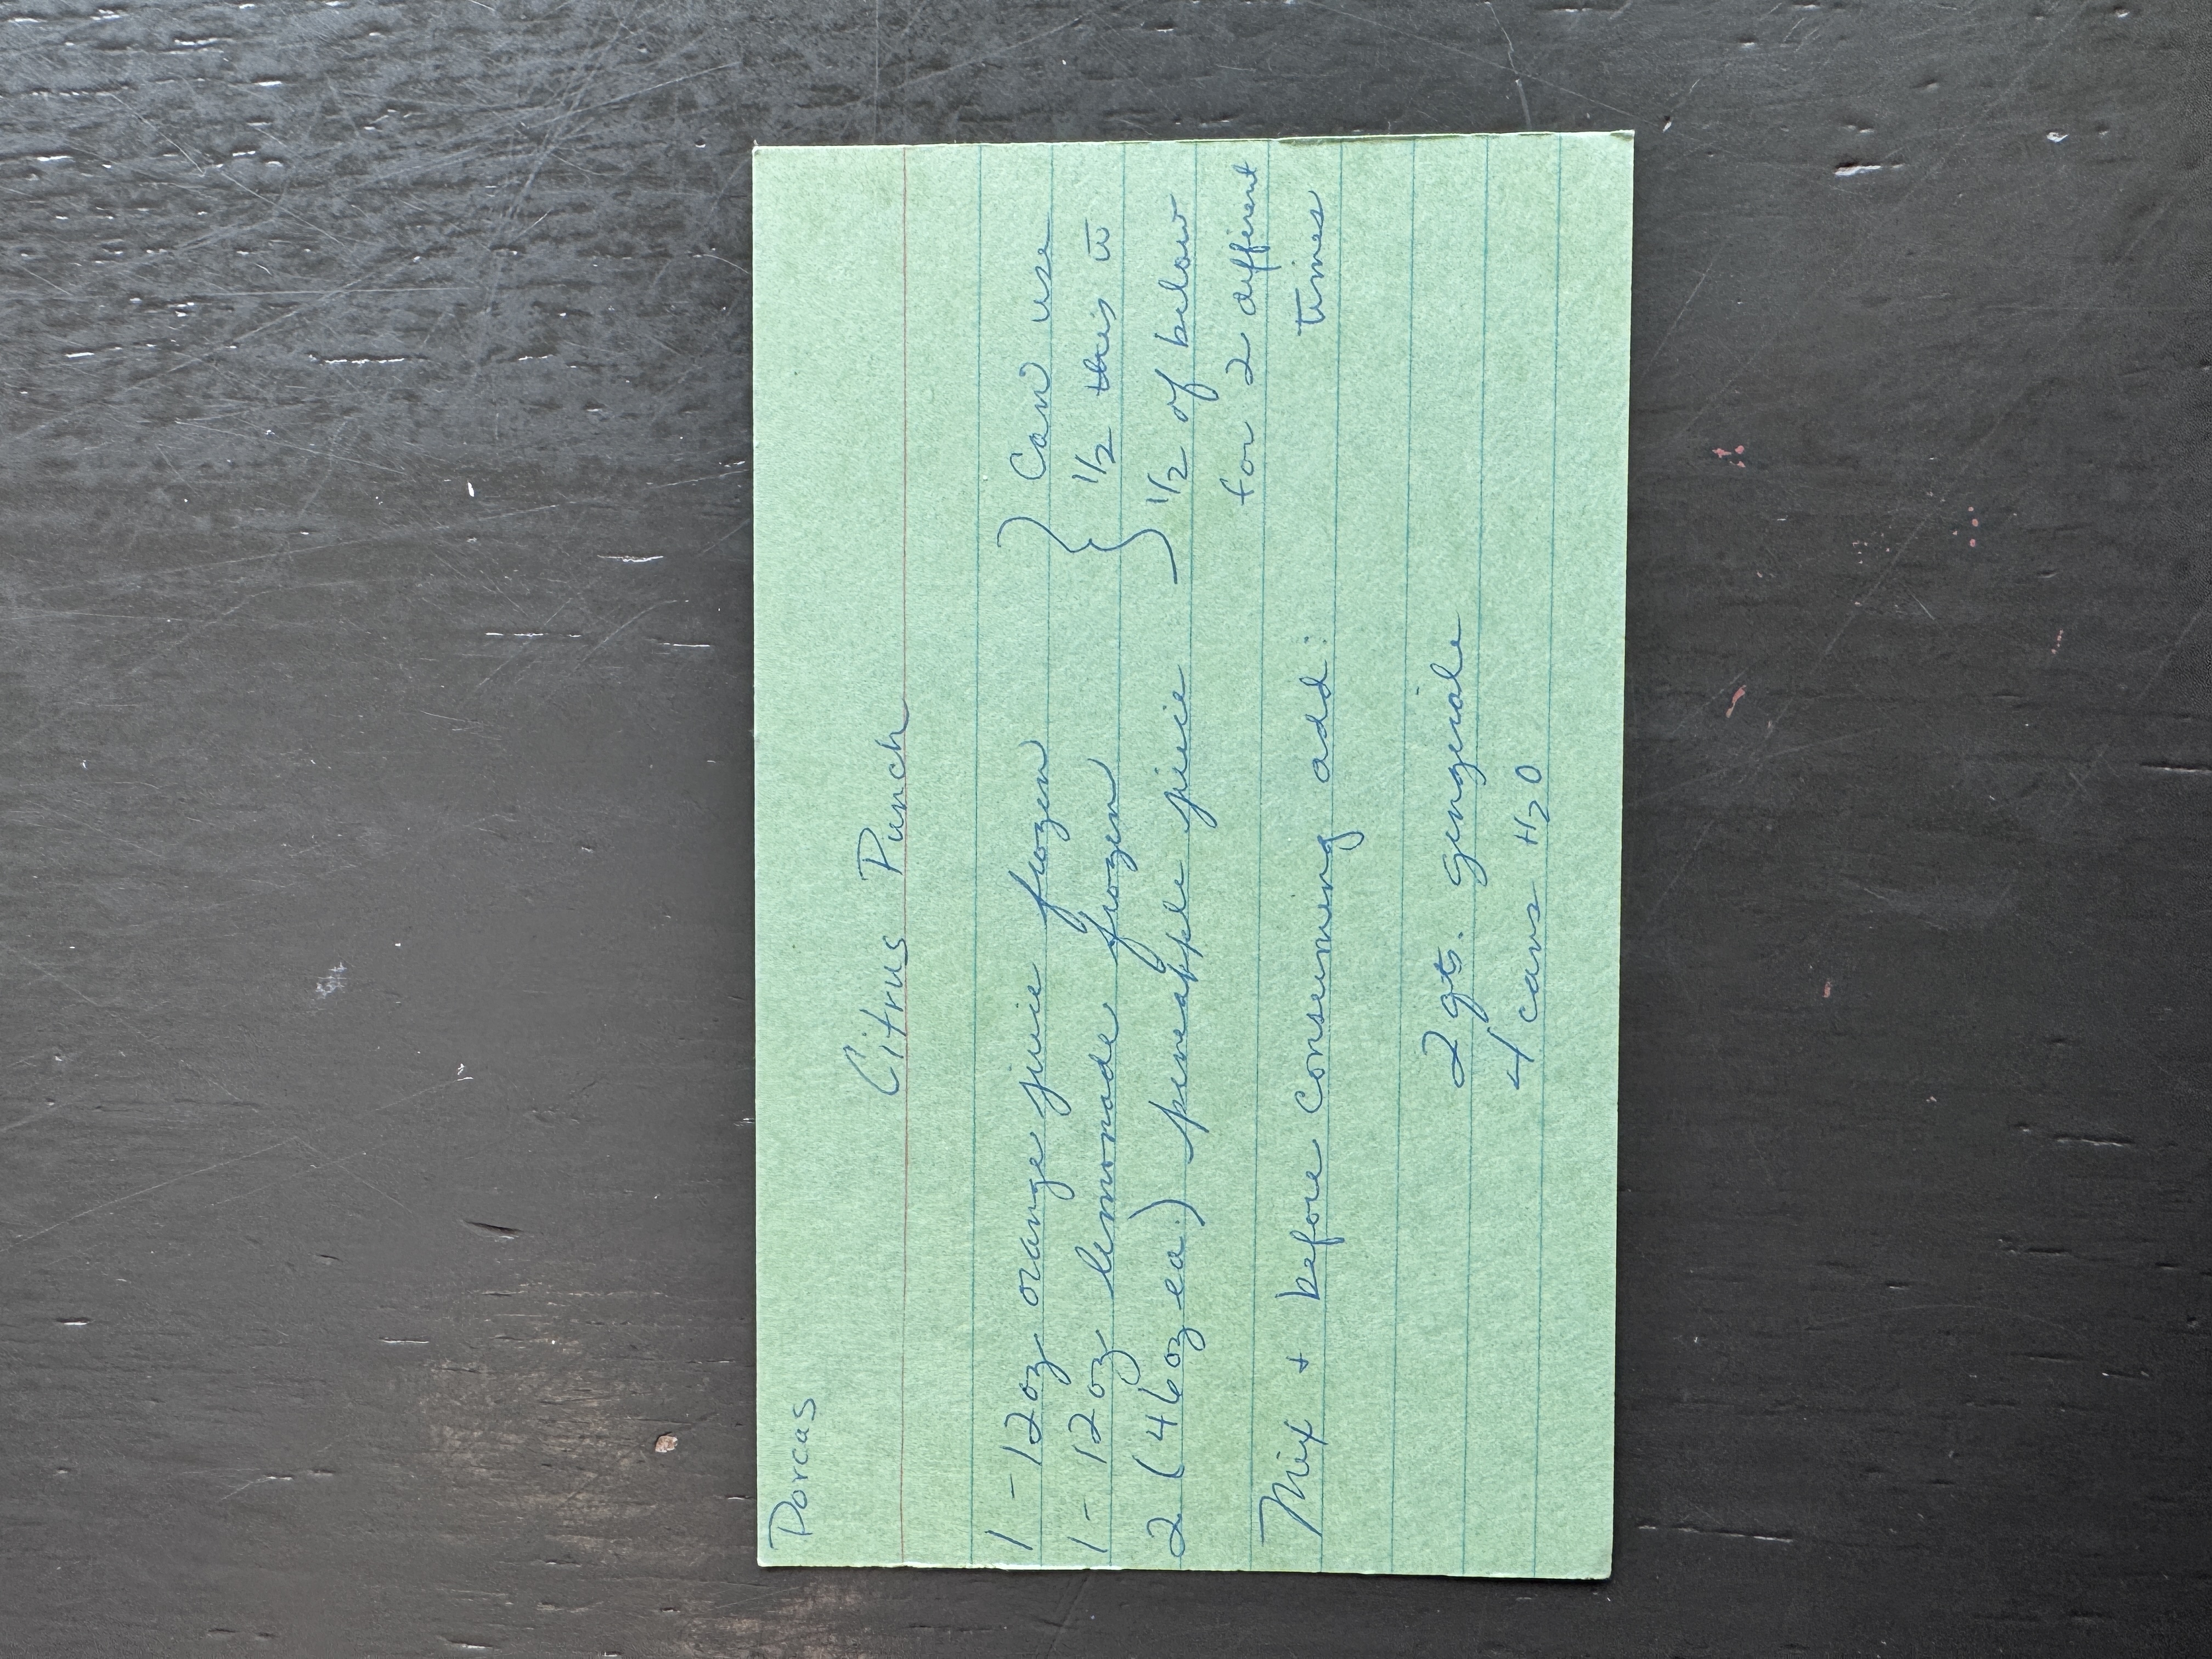 Dorcas
Citrus Punch
1 - 12oz orange juice frozen
1 - 12oz lemonade frozen
2 (46oz ea.) pineapple juice
} Can use
1/2 this w̄
1/2 of below
for 2 different
times
Mix + before Consuming add:
2 qts. gingerale
4 cans H₂O